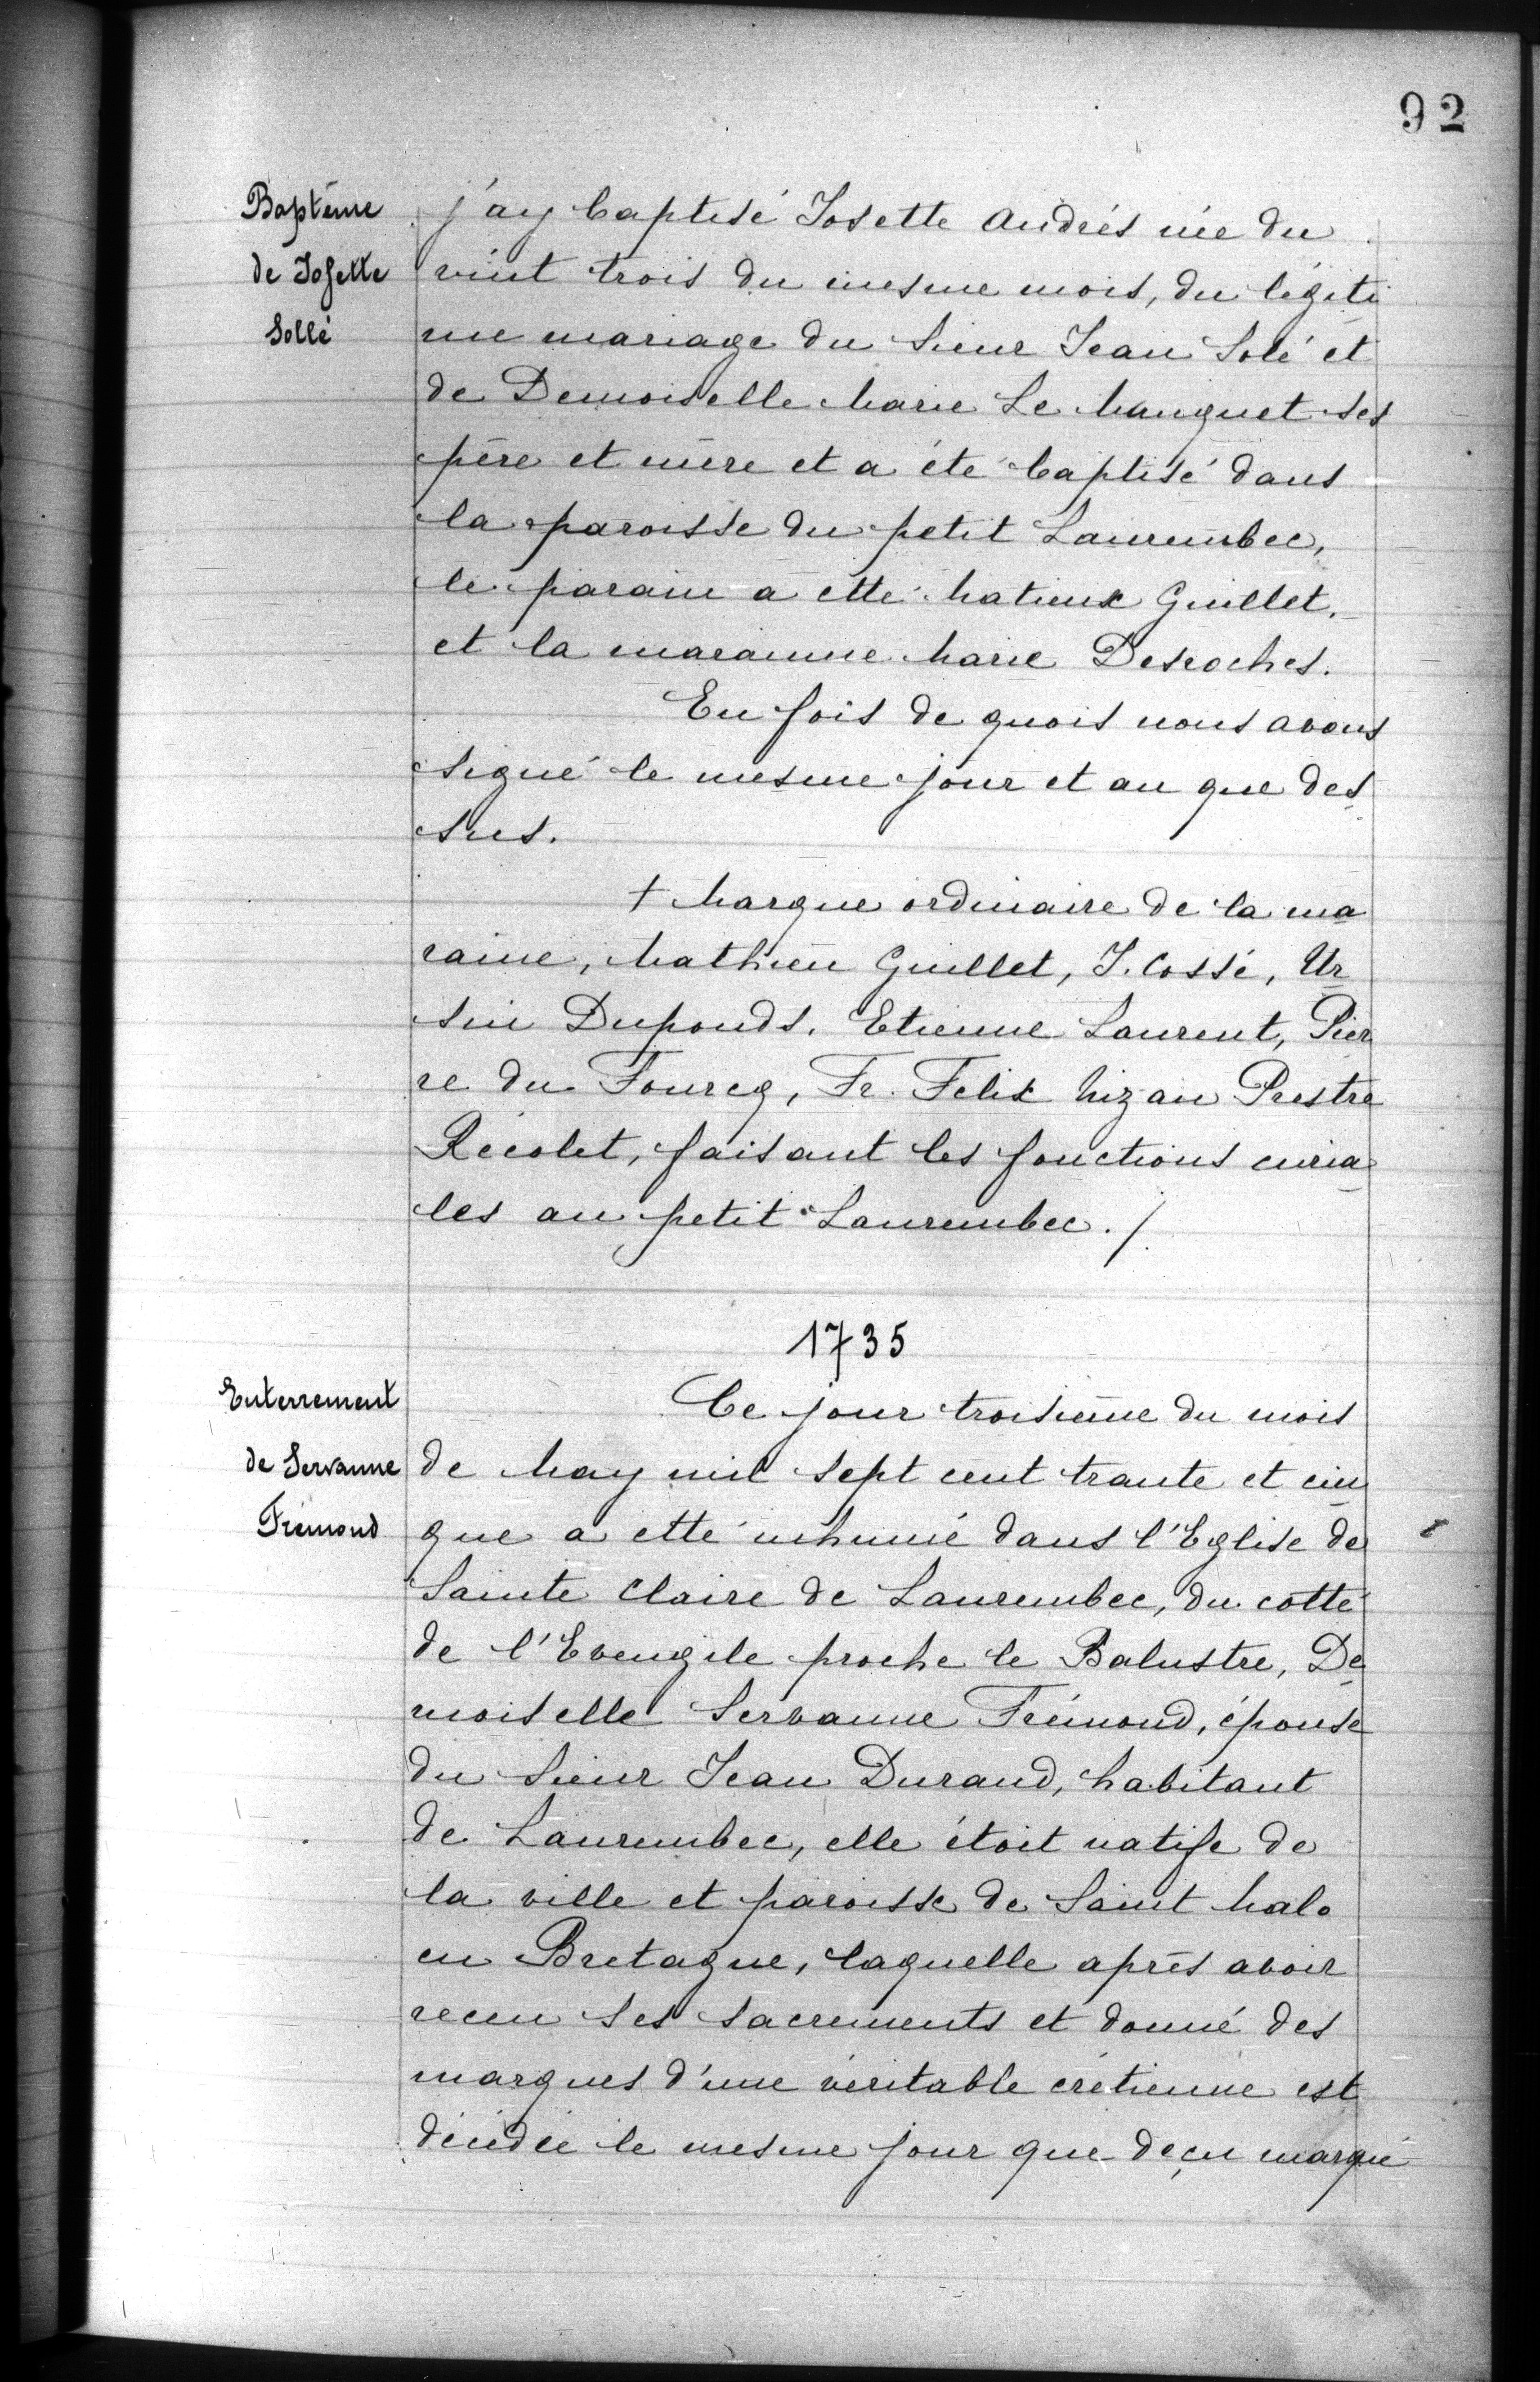 92
Baptême
de Josette
Sollé
j'ay baptisé Josette Andrés née du
vint trois du mesme mois, du légiti
me mariage du Sieur Jean Solé et
de Demoiselle Marie Le Manquet ses
père et mère et a été baptisé dans
la paroisse du petit Laurembec,
le parain a etté Matieux Guillet,
et la maranne Marie Desroches.
En fois de quois nous avons
signé le mesme jour et an que des
sus.
† Marque ordinaire de la ma
raine, Mathieu Guillet, J. Cossé, Ur
sin Duponds, Etienne Laurent, Pier
re du Fourcq, Fr. Felix Nizan Prestre
Récolet, faisant les fonctions curia
les au petit Laurembec./
1735
Enterrement
de Servanne
Frémond
Ce jour troisième du mois
de May mil sept cent trante et cin
que a etté inhumé dans l'Eglise de
Sainte Claire de Laurembec, du cotté
de l'Evengile proche le Balustre, De
moiselle Servanne Frémond, épouse
du Sieur Jean Durand, habitant
de Laurembec, elle étoit natife de
la ville et paroisse de Saint Malo
en Bretagne, laquelle après avoir
receu ses sacrements et donné des
marques d'une véritable crétienne est
décédée le mesme jour que deçu marqué